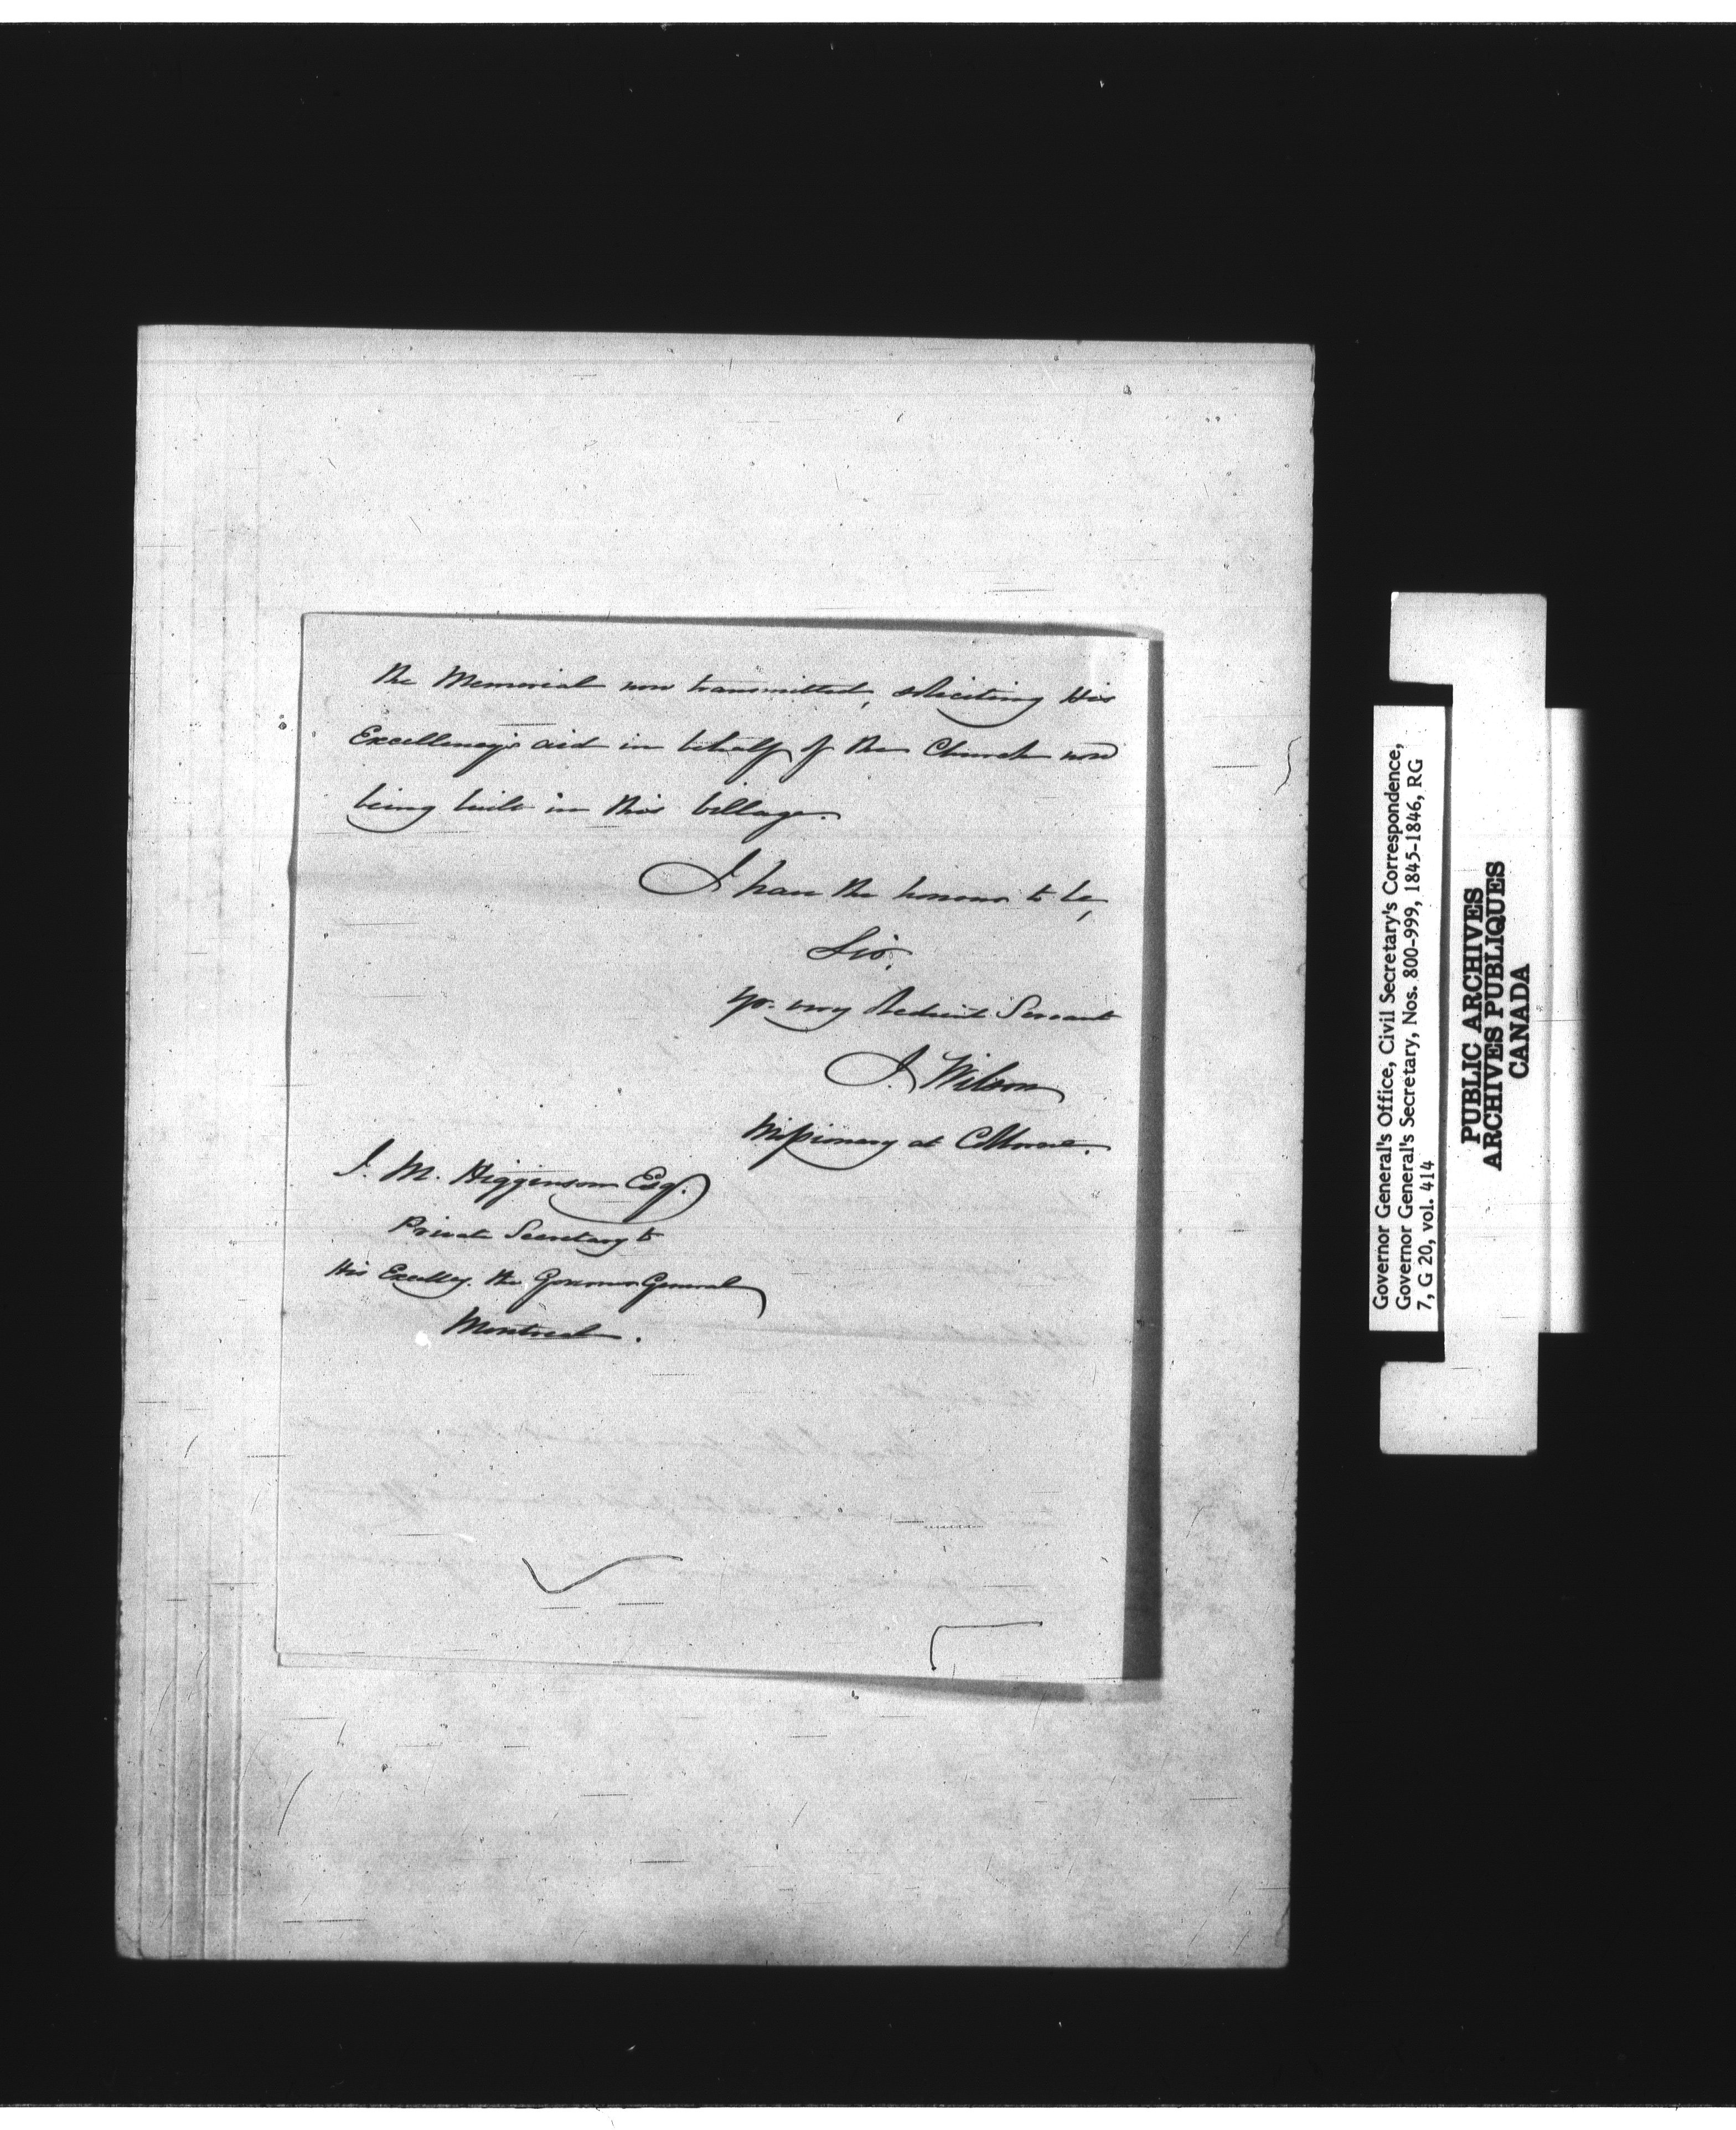 the Memorial now transmitted, soliciting His
Excellency's aid in behalf of the Church now
being built in this Village.
I have the honour to be,
Sir,
Yr. very Obedient Servant
J. Wilson
Missionary at Colborne.
J. M. Higginson Esq.
Private Secretary to
His Excelley. the Governor General
Montreal.
Governor General's Office, Civil Secretary's Correspondence,
Governor General's Secretary, Nos. 800-999, 1845-1846, RG
7, G 20, vol. 414
PUBLIC ARCHIVES
ARCHIVES PUBLIQUES
CANADA